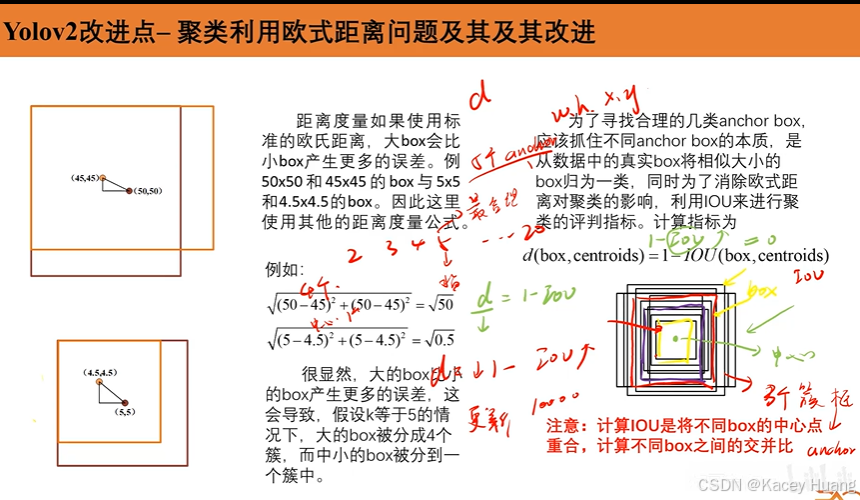 Yolov2改进点– 聚类利用欧式距离问题及其及其改进
(45,45)
(50,50)
(4.5,4.5)
(5,5)
距离度量如果使用标
准的欧氏距离，大box会比
小box产生更多的误差。例
50x50 和 45x45 的 box 与 5x5
和4.5x4.5的box。因此这里
使用其他的距离度量公式。
2 3 4 5 ... 20
例如:
√(50−45)²+(50−45)² = √50
√(5−4.5)²+(5−4.5)² = √0.5
很显然，大的box比小
的box产生更多的误差，这
会导致，假设k等于5的情
况下，大的box被分成4个
簇，而中小的box被分到一
个簇中。
d
5个 anchor
最合理
d = 1-IOU
d ↓ 1- IOU↑
更新 10000
w.h. x.y
为了寻找合理的几类anchor box,
应该抓住不同anchor box的本质，是
从数据中的真实box将相似大小的
box归为一类，同时为了消除欧式距
离对聚类的影响，利用IOU来进行聚
类的评判指标。计算指标为
1-IOU↑ = 0
d(box,centroids)=1−IOU(box,centroids)
box
IOU
中心
簇框
anchor
注意：计算IOU是将不同box的中心点
重合，计算不同box之间的交并比
CSDN @Kacey Huang